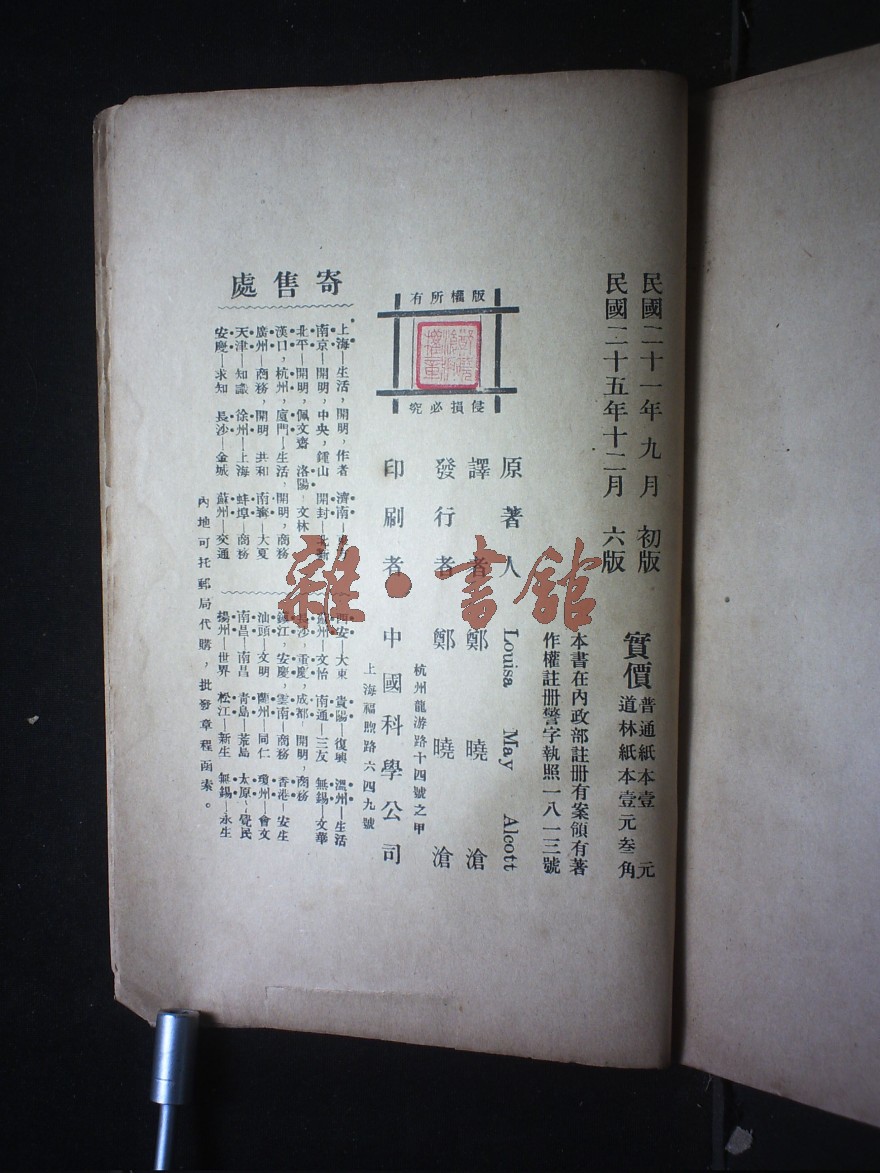 民國二十一年九月 初版
民國二十五年十二月 六版
實價 普通紙本壹元
道林紙本壹元叁角
本書在內政部註册有案領有著
作權註册警字執照一八一三號
原著人 Louisa May Alcott
譯者 鄭曉滄
發行者 鄭曉滄
杭州龍游路十四號之甲
印刷者 中國科學公司
上海福煦路六四九號
版權所有
侵損必究
寄售處
上海—生活,開明,作者 濟南—東方
南京—開明,中央,鍾山 開封—北新
北平—開明,佩文齋 洛陽—文林
漢口,杭州,廈門—生活,開明,商務
廣州—商務 開明 共和 南寧—大夏
天津—知識 徐州—上海 蚌埠—商務
安慶—求知 長沙—金城 蘇州—交通
西安—大東 貴陽—復興 溫州—生活
蘇州—文怡 南通—三友 無錫—文華
長沙,重慶,成都—開明,商務
鎮江,安慶,雲南—商務 香港—安生
汕頭—文明 蘭州—同仁 瓊州—會文
南昌—南昌 青島—荒島 太原—覺民
揚州—世界 松江—新生 無錫—永生
內地可托郵局代購,批發章程函索。
雜·書館